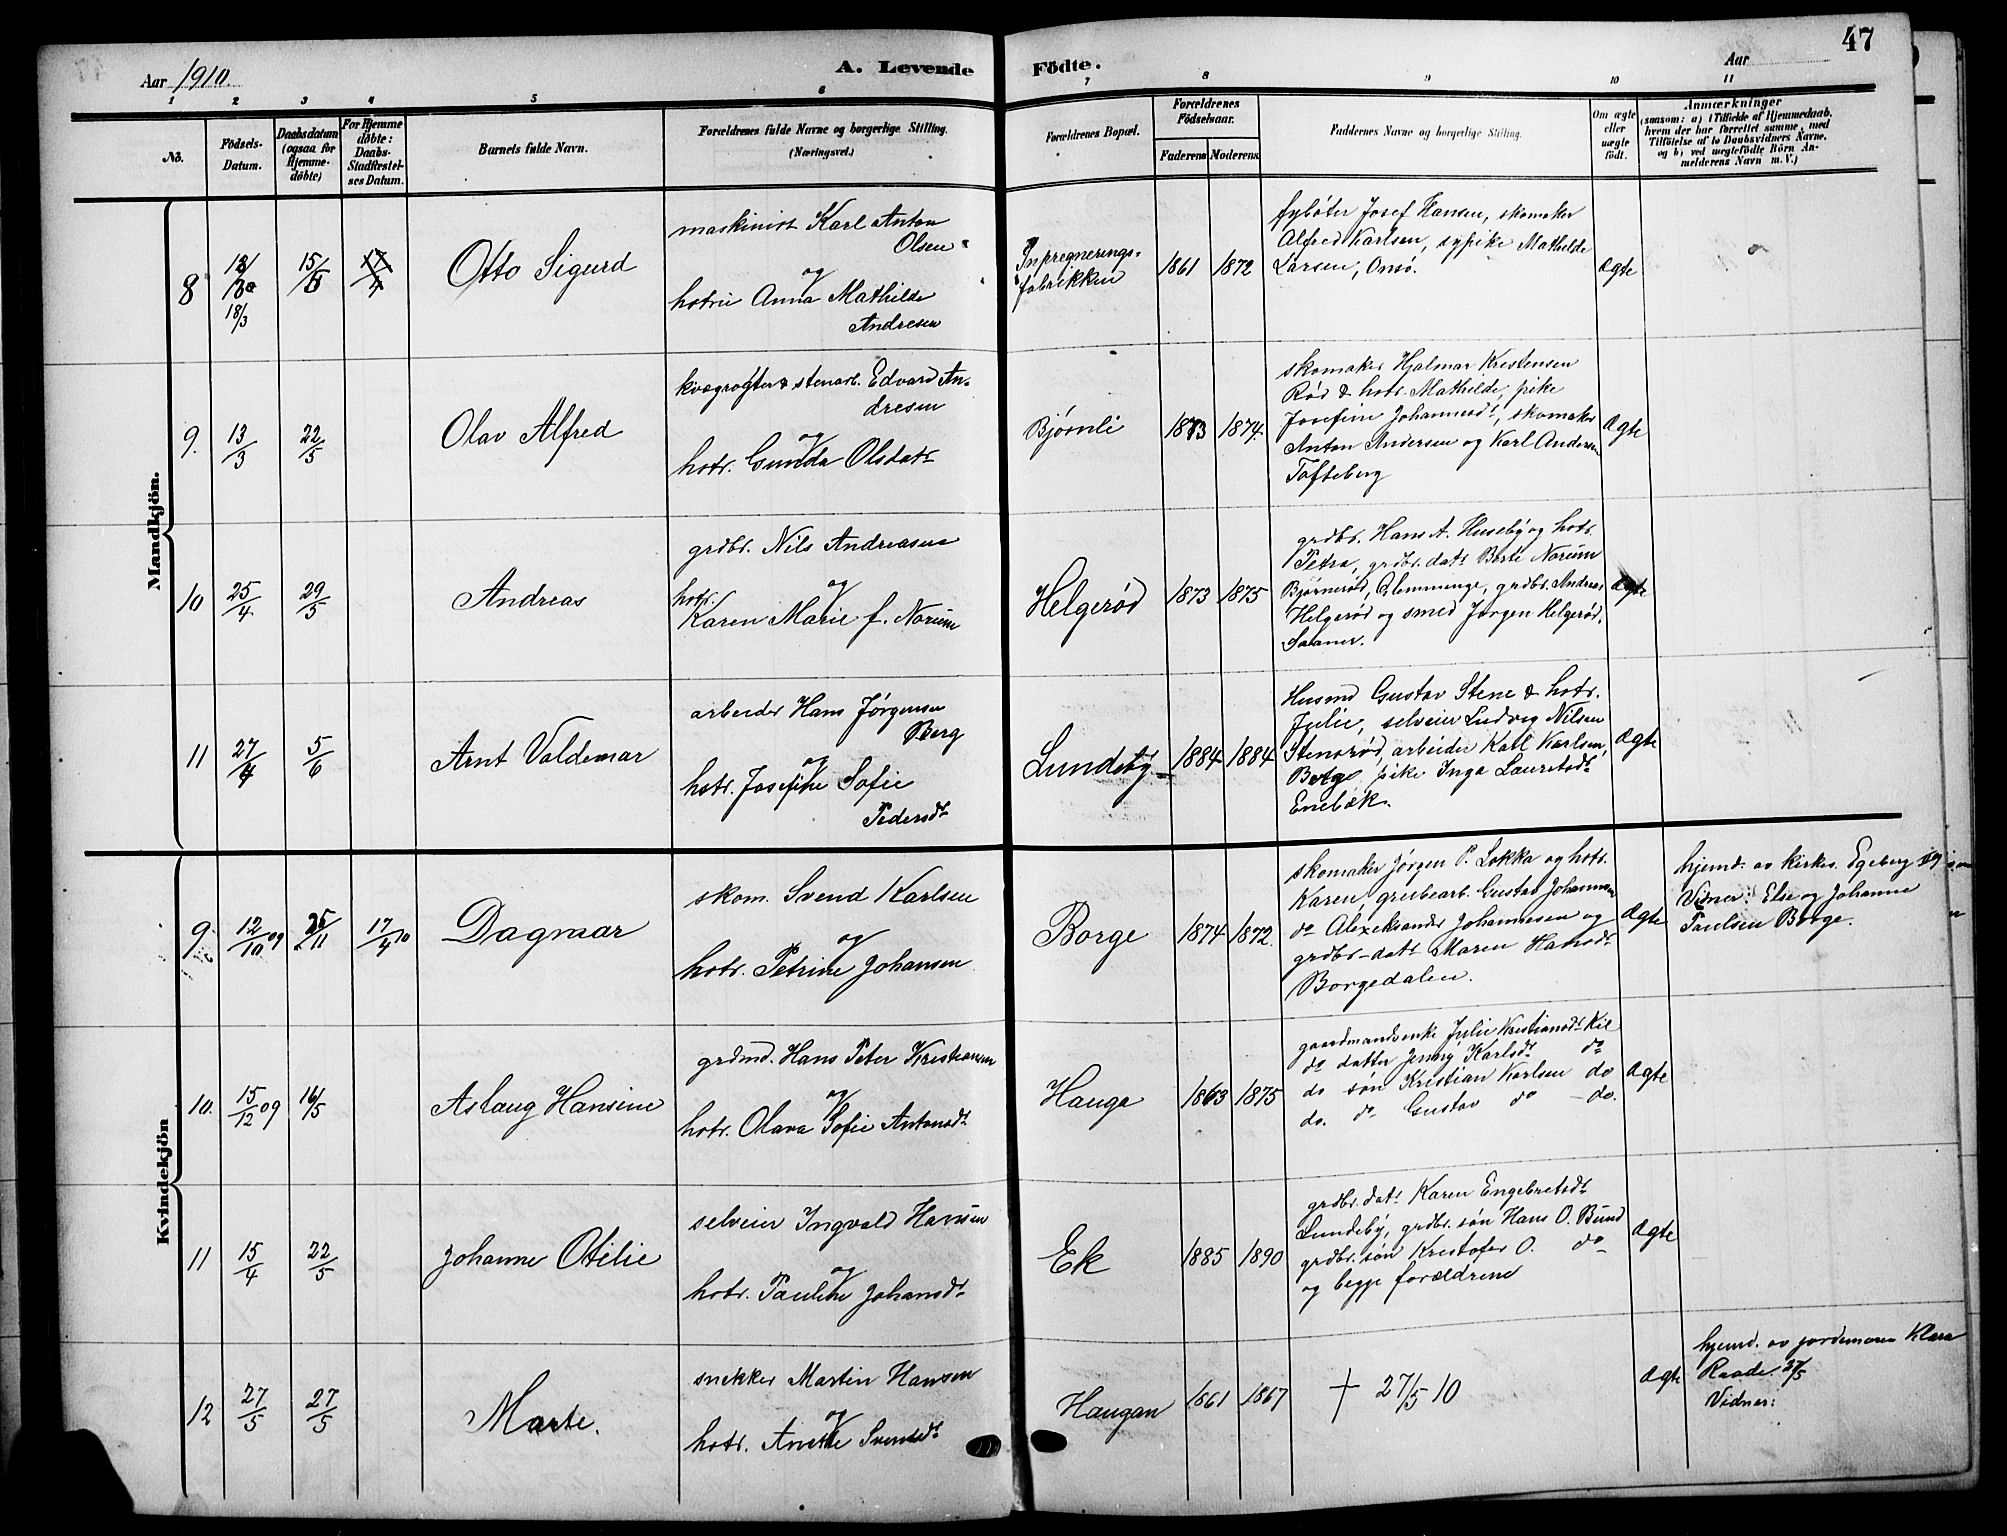 47
Aar 1910.
A. Levende Födte.
Aar
1 2 3 4 5 6 7 8 9 10 11
No.
Födsels-Datum.
Daabsdatum (ogsaa for Hjemme-döbte)
For Hjemme döbte: Daabs-Stadfæstelses Datum.
Barnets fulde Navn.
Forældrenes fulde Navne og borgerlige Stilling.
(Næringsvei.)
Forældrenes Bopæl.
Forældrenes Födselsaar.
Faderens Moderens
Faddernes Navne og borgerlige Stilling.
Om ægte eller uægte födt.
Anmærkninger
(saasom: a) i Tilfælde af Hjemmedaab.
hvem der har forrettet samme, med
Tilföielse af to Daabsvidners Navne.
og b) ved uægtefödte Börn An-
melderens Navn m. V.)
Mandkjön.
8 18/3 15/5 17/4
Otto Sigurd
maskinist Karl Anton
Olsen
og
hstru Anna Mathilde
Andresen
Inpregnerings-
fabrikken
1861 1872
fyrbøter Josef Hansen, skomaker
Alfred Karlsen, sypike Mathilde
Larsen, Onsø.
Ægte
9. 13/3 22/5
Olav Alfred
kvægrøgter & stenarb. Edvard An-
dresen
og
hstr. Gunda Olsdatr
Bjørnli
1873 1874.
skomaker Hjalmar Kristensen
Rød & hstr. Mathilde, pike
Josefine Johannesdtr, skomaker
Anton Andersen og Karl Andersen
Tofteberg
Ægte
10 25/4 29/5
Andreas
grdbr. Nils Andreasen
og
hstr.
Karen Marie f. Norum
Helgerød
1873 1875
grdbr. Hans A. Huseby og hstr.
Petra, grdbr. datr Berte Norum
Bjørnerød, Glemminge, grdbr. Andreas
Helgerød og smed Jørgen Helgerød,
Saaner.
Ægte
11 27/4 5/6
Arnt Valdemar
arbeider Hans Jørgensen
Berg
og
hstr. Josefine Sofie
Pedersdtr
Lundeby
1884 1884
Husmd Gustav Stene & hstr.
Julie, selveier Ludvig Nilsen
Stensrød, arbeider Karl Karlsen,
Borge, pike Inga Lauretsdtr
Enebæk.
Ægte
Kvindekjön
9. 12/10 09 25/11 17/4 10
Dagmar
skom. Svend Karlsen
og
hstr. Petrine Johansen
Borge
1874 1872.
skomaker Jørgen P. Løkka og hstr.
Karen, grubearb. Gustav Johannesen
do Alexeksander Johannesen og
grdbr-datr Maren Hansdtr
Borgedalen.
Ægte
hjemd. av kirkes. Egeberg
Vidner: Else og Johanne
Paulsen Borge.
10. 15/12 09 16/5
Aslaug Hansine
grdmd. Hans Peter Kristiansen
og
hstr. Olava Sofie Antonsdtr
Hauge
1863 1875
gaardmandsenke Julie Kristiansdtr Kil
do datter Jenny Karlsdtr do
do søn Kristian Karlsen do
do. do Gustav do - do.
Ægte
11 15/4 22/5
Johanne Otilie
selveier Ingvald Hansen
og
hstr. Pauline Johansdtr
Ek
1885 1890
grdbr. datr Karen Engebretsdtr
Lundeby, grdbr. søn Hans O. Bund
grdbr. søn Kristofer O. do
og begge forældrene
Ægte
12 27/5 27/5
Marte.
snekker Martin Hansen
og
hstr. Anette Svensdtr
Haugan
1861 1867
† 27/5 10
Ægte
hjemd. av jordemoren Klara
Raade 27/5
Vidner: